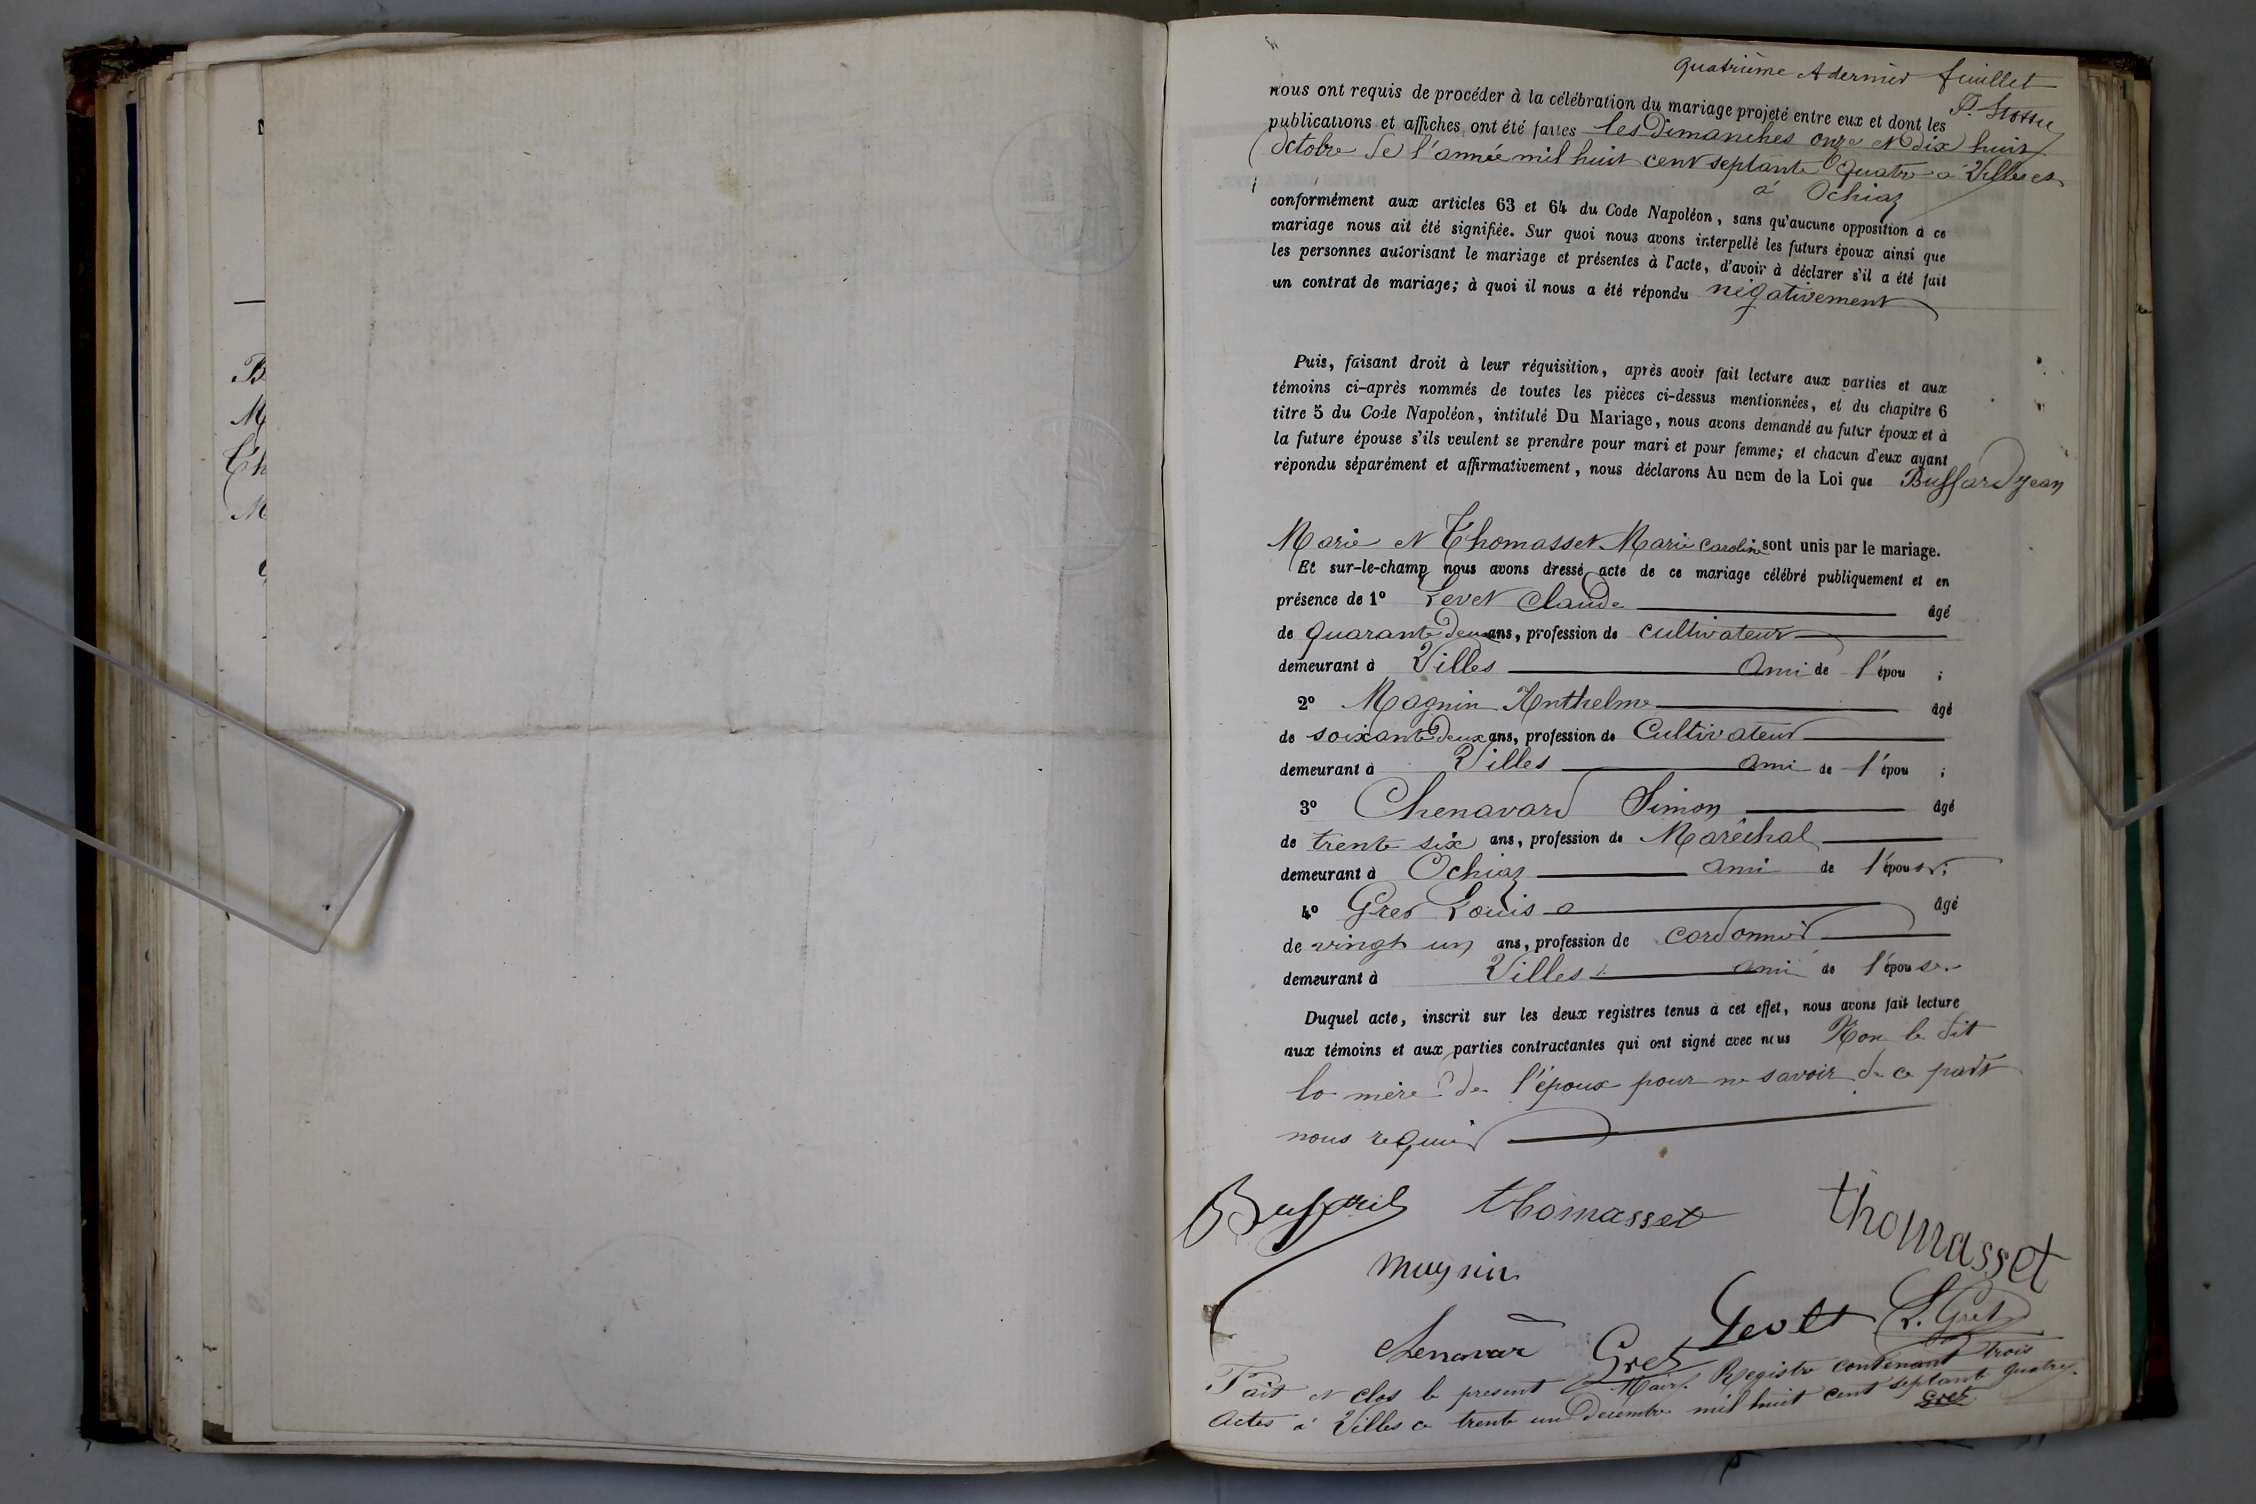 B
M
Th
M
quatrième et dernier feuillet
nous ont requis de procéder à la célébration du mariage projeté entre eux et dont les
publications et affiches ont été faites les Dimanches onze et dix huit
Octobre de l'année mil huit cent septante quatre à Villes et
à Ochiaz
conformément aux articles 63 et 64 du Code Napoléon, sans qu'aucune opposition à ce
mariage nous ait été signifiée. Sur quoi nous avons interpellé les futurs époux ainsi que
les personnes autorisant le mariage et présentes à l'acte, d'avoir à déclarer s'il a été fait
un contrat de mariage; à quoi il nous a été répondu négativement
Puis, faisant droit à leur réquisition, après avoir fait lecture aux parties et aux
témoins ci-après nommés de toutes les pièces ci-dessus mentionnées, et du chapitre 6
titre 5 du Code Napoléon, intitulé Du Mariage, nous avons demandé au futur époux et à
la future épouse s'ils veulent se prendre pour mari et pour femme; et chacun d'eux ayant
répondu séparément et affirmativement, nous déclarons Au nom de la Loi que Buffard jean
Marie et Thomasset Marie Caroline sont unis par le mariage.
Et sur-le-champ nous avons dressé acte de ce mariage célébré publiquement et en
présence de 1° Levet Claude âgé
de quarante deux ans, profession de cultivateur
demeurant à Villes ami de l'épou ;
2° Magnin Anthelme âgé
de soixante deux ans, profession de Cultivateur
demeurant à Villes ami de l'épou ;
3° Chenavard Simon âgé
de trente six ans, profession de Maréchal
demeurant à Ochiaz ami de l'épouse;
4° Gret Louis âgé
de vingt un ans, profession de cordonnier
demeurant à Villes ami de l'épouse.
Duquel acte, inscrit sur les deux registres tenus à cet effet, nous avons fait lecture
aux témoins et aux parties contractantes qui ont signé avec nous Non le dit
la mère de l'époux pour ne savoir de ce part
nous requis
Buffard thomasset thomasset
Magnin
Levet L. Gret
Chenavar Gret
Maire.
Fait et clos le present Registre contenant trois
Actes à Villes ce trente un Decembre mil huit cent septante quatre.
Gret